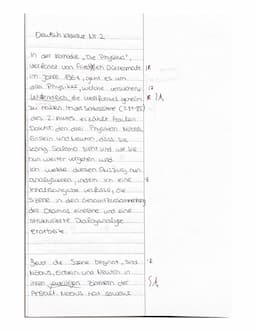 Deutsch Klausur Nr. 2
In der Komödie „Die Physiker",
verfasst von Friedrich Dürrenmatt
im Jahre 1961, geht es um
drei Physiker, welche versuchen
die Weltformel geheim
zu halten. In der
des 2. Aktes erzählt Fräulein
Doktor den drei Physikern Möbius,
Einstein und Newton, dass sie
König Salomo sieht und wie sie
nun weiter vorgehen wird.
Ich werde diesen Auszug nun
analysieren, indem ich eine
Inhaltsangabe verfasse, die
Szene in den Gesamtzusammenhang
des Dramas einordne und eine
strukturierte Dialoganalyse
erarbeite.
Bevor die Szene beginnt, sind
Möbius, Einstein und Newton in
ihren jeweiligen Zimmern der
Anstalt. Möbius hat sowohl